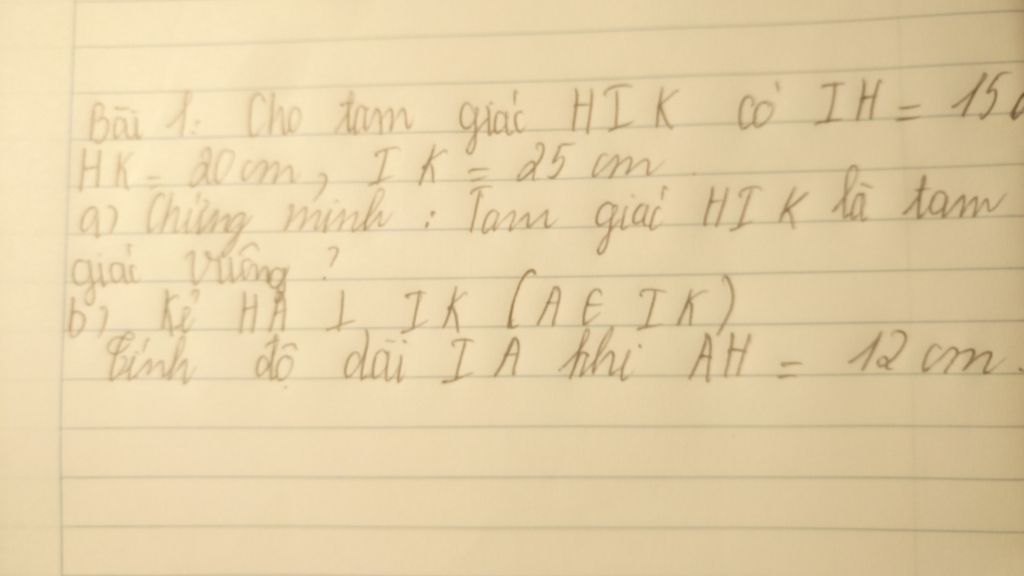 Bài 1: Cho tam giác HIK có IH = 15c
HK = 20 cm, IK = 25 cm.
a) Chứng minh : Tam giác HIK là tam
giác vuông ?
b) Kẻ HA ⊥ IK (A ∈ IK)
Tính độ dài IA khi AH = 12 cm.